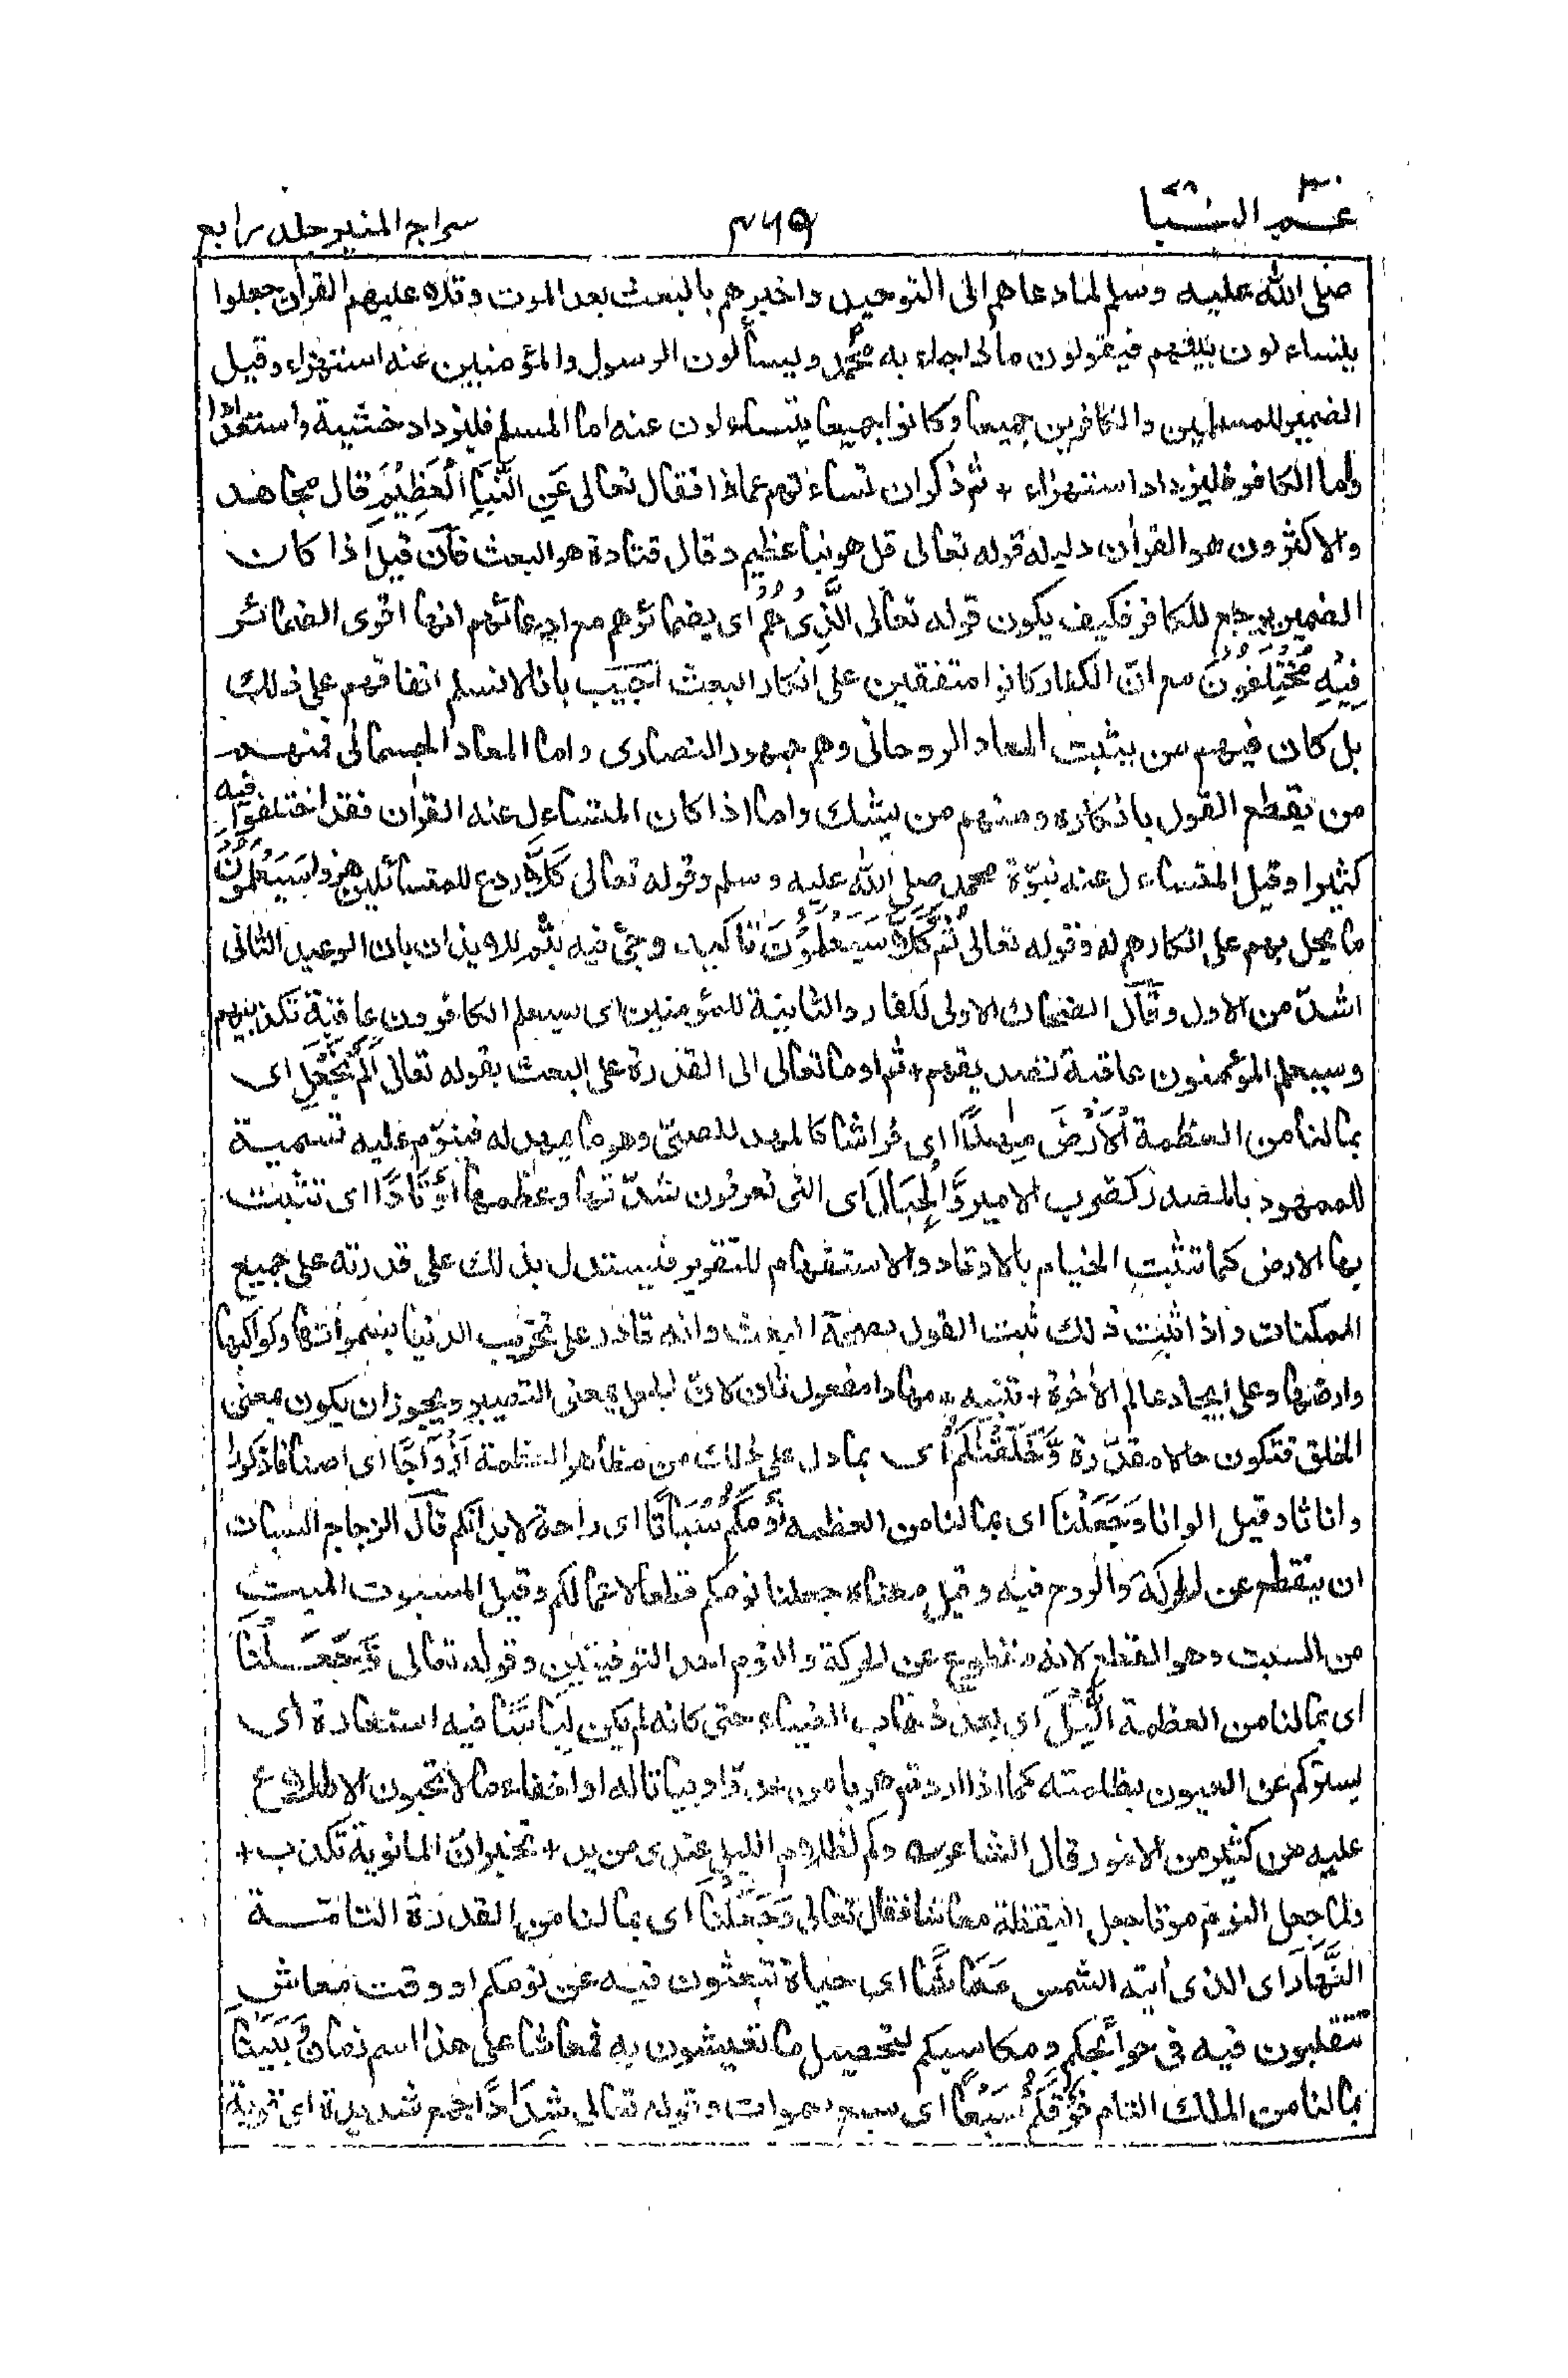 عمّ ٣٠ النبا ٧٨
٤٦٩
سراج المنير جلد رابع
صلى الله عليه وسلم لما دعاهم الى التوحيد واخبرهم بالبعث بعد الموت وتلا عليهم القرآن جعلوا
يتساءلون بينهم فيقولون ماذا جاء به محمد ويسألون الرسول والمؤمنين عنه استهزاء وقيل
الضمير للمسلمين والكافرين جميعا وكانوا جميعا يتساءلون عنه اما المسلم فليزداد خشية واستعدادا
واما الكافر فليزداد استهزاء + ثم ذكر ان تساءلهم عماذا فقال تعالى عَنِ النَّبَإِ الْعَظِيْمِ قال مجاهد
والاكثرون هو القرآن دليله قوله تعالى قل هو نبأ عظيم وقال قتادة هو البعث فان قيل اذا كان
الضمير يرجع للكافر فكيف يكون قوله تعالى الَّذِىْ هُمْ اى بضمائرهم مع ادعائهم انها اقوى الضمائر
فِيْهِ مُخْتَلِفُوْنَ مع انّ الكفار كانوا متفقين على انكار البعث اجيب بانا لا نسلم اتفاقهم على ذلك
بل كان فيهم من يثبت المعاد الروحانى وهم جمهور النصارى واما المعاد الجسمانى فمنهم
من يقطع القول بانكاره ومنهم من يشك واما اذا كان المتساءل عنه القرآن فقد اختلفوا فيه
كثيرا وقيل المتساءل عنه نبوّة محمد صلى الله عليه وسلم وقوله تعالى كَلَّا ردع للمتسائلين هزوا سَيَعْلَمُوْنَ
ما يحل بهم على انكارهم له وقوله تعالى ثُمَّ كَلَّا سَيَعْلَمُوْنَ تاكيد وجئ فيه بثم للايذان بان الوعيد الثانى
اشدّ من الاول وقال الضحاك الاولى للكفار والثانية للمؤمنين اى سيعلم الكافرون عاقبة تكذيبهم
وسيعلم المؤمنون عاقبة تصديقهم + ثم اوما تعالى الى القدرة على البعث بقوله تعالى اَلَمْ نَجْعَلِ اى
بما لنا من العظمة الْاَرْضَ مِهٰدًا اى فراشا كالمهد للصبىّ وهو ما يمهد له فينوّم عليه تسمية
للممهود بالمصدر كضرب الامير وَّالْجِبَالَ اى التى تعرفون شدّتها وعظمها اَوْتَادًا اى تثبت
بها الارض كما تثبت الخيام بالاوتاد والاستفهام للتقرير فيستدل بذلك على قدرته على جميع
الممكنات واذا ثبت ذلك ثبت القول بصحة البعث وانه قادر على تخريب الدنيا بسمواتها وكواكبها
وارضها وعلى ايجاد عالم الآخرة + تنبيه + مهادا مفعول ثان لانّ الجعل بمعنى التصيير ويجوز ان يكون بمعنى
الخلق فتكون حالا مقدّرة وَّخَلَقْنٰكُمْ اى بما دل على ذلك من مظاهر العظمة اَزْوَاجًا اى اصنافا ذكورا
واناثا وقيل الوانا وَجَعَلْنَا اى بما لنا من العظمه نَوْمَكُمْ سُبَاتًا اى راحة لابدانكم قال الزجاج السبات
ان ينقطع عن الحركة والروح فيه وقيل معناه جعلنا نومكم قطعا لاعمالكم وقيل المسبوت الميت
من السبت وهو القطع لانه مقطوع عن الحركة والنوم احد التوفيتين وقوله تعالى وَّجَعَلْنَا
اى بما لنا من العظمة الَّيْلَ اى بعد ذهاب الضياء حتى كانه لم يكن لِبَاسًا فيه استعارة اى
يستركم عن العيون بظلمته كما اذا اردتم هربا من عدوّ او بياتا له او اخفاء ما لا تحبون الاطلاع
عليه من كثير من الامور قال الشاعر وكم لظلام الليل عندى من يد + تخبر انّ المانوية تكذب +
ولما جعل النوم موتا جعل اليقظة معاشا فقال تعالى وَجَعَلْنَا اى بما لنا من القدرة التامّة
النَّهَارَ اى الذى آيته الشمس مَعَاشًا اى حياة تبعثون فيه عن نومكم او وقت معاش
تتقلبون فيه فى حوائجكم ومكاسبكم لتحصيل ما تعيشون به فمعاشا على هذا اسم زمان وَّبَنَيْنَا
بما لنا من الملك التام فَوْقَكُمْ سَبْعًا اى سبع سموات وقوله تعالى شِدَادًا جمع شديدة اى قوية